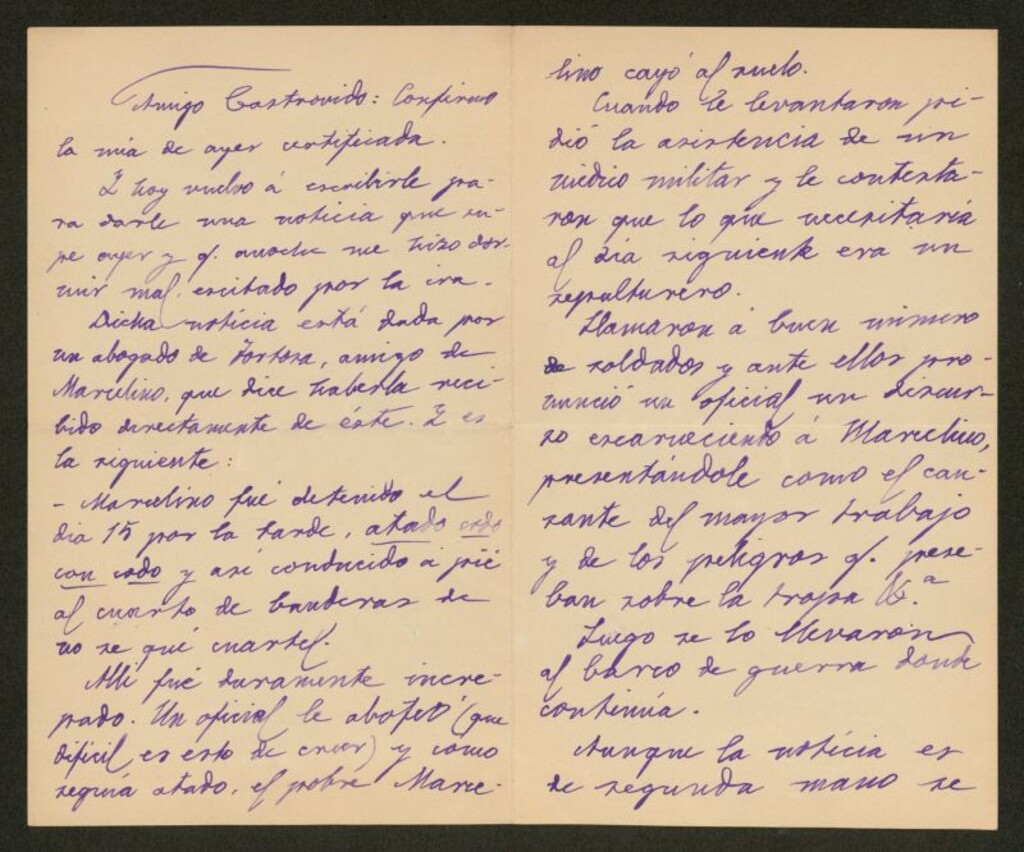 Amigo Castrovido: Confirmo
la mía de ayer certificada.
Y hoy vuelvo á escribirle pa-
ra darle una noticia que su-
pe ayer y q. anoche me hizo dor-
mir mal, escitado por la ira.
Dicha noticia está dada por
un abogado de Tortosa, amigo de
Marcelino, que dice haberla reci-
bido directamente de éste. Y es
la siguiente:
- Marcelino fué detenido el
dia 15 por la tarde, atado codo
con codo y así conducido á pié
al cuarto de banderas de
no se qué cuartel.
Allí fué duramente incre-
pado. Un oficial le abofeteó (que
difícil es esto de creer) y como
seguía atado, el pobre Marce-
lino cayó al suelo.
Cuando le levantaron pi-
dió la asistencia de un
médico militar y le contesta-
ron que lo que necesitaría
al día siguiente era un
sepulturero.
Llamaron á buen número
de soldados y ante ellos pro-
nunció un oficial un discur-
so escarneciendo á Marcelino,
presentándole como el cau-
sante del mayor trabajo
y de los peligros q. pesa-
ban sobre la tropa &.ª
Luego se lo llevaron
al barco de guerra donde
continúa.
Aunque la notícia es
de segunda mano se